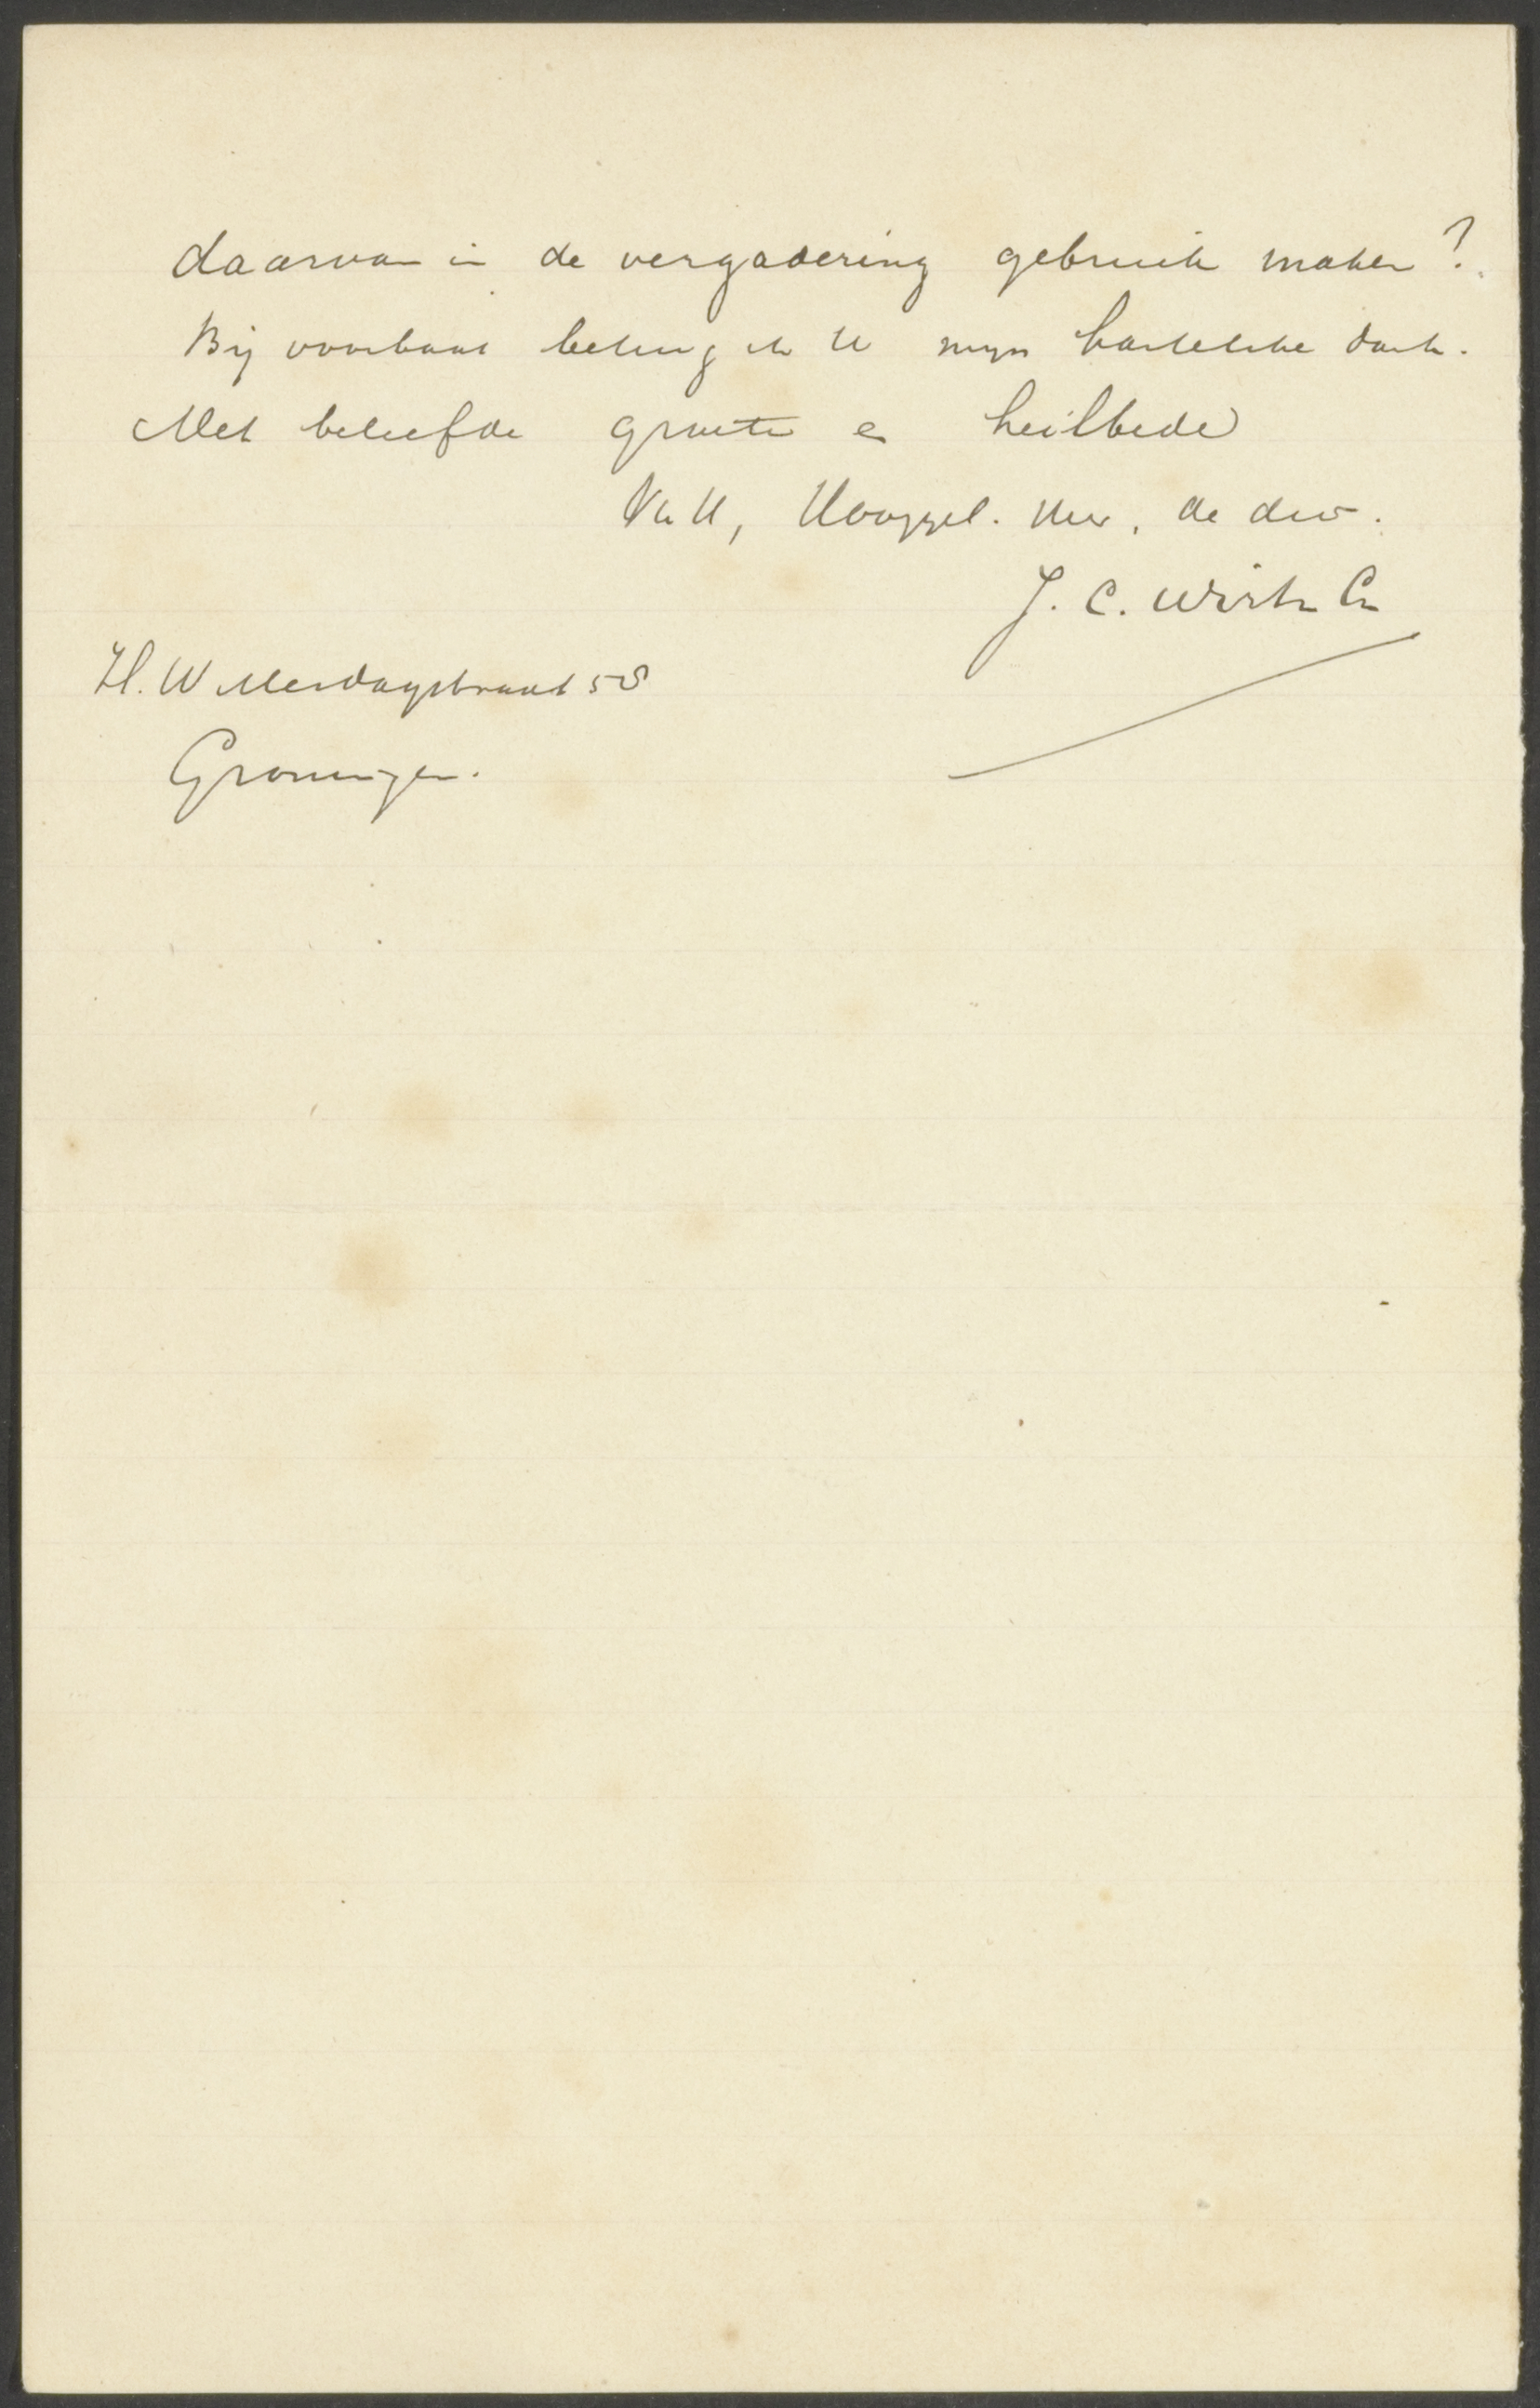 daarvan in de vergadering gebruik maken?
Bij voorbaat betuig ik U mijn hartelijke dank.
Met beleefde groeten en heilbede
Van U, Hooggel. Heer, de dw.
J. C. Wirtz Czn
H. W Mesdagstraat 58
Groningen.